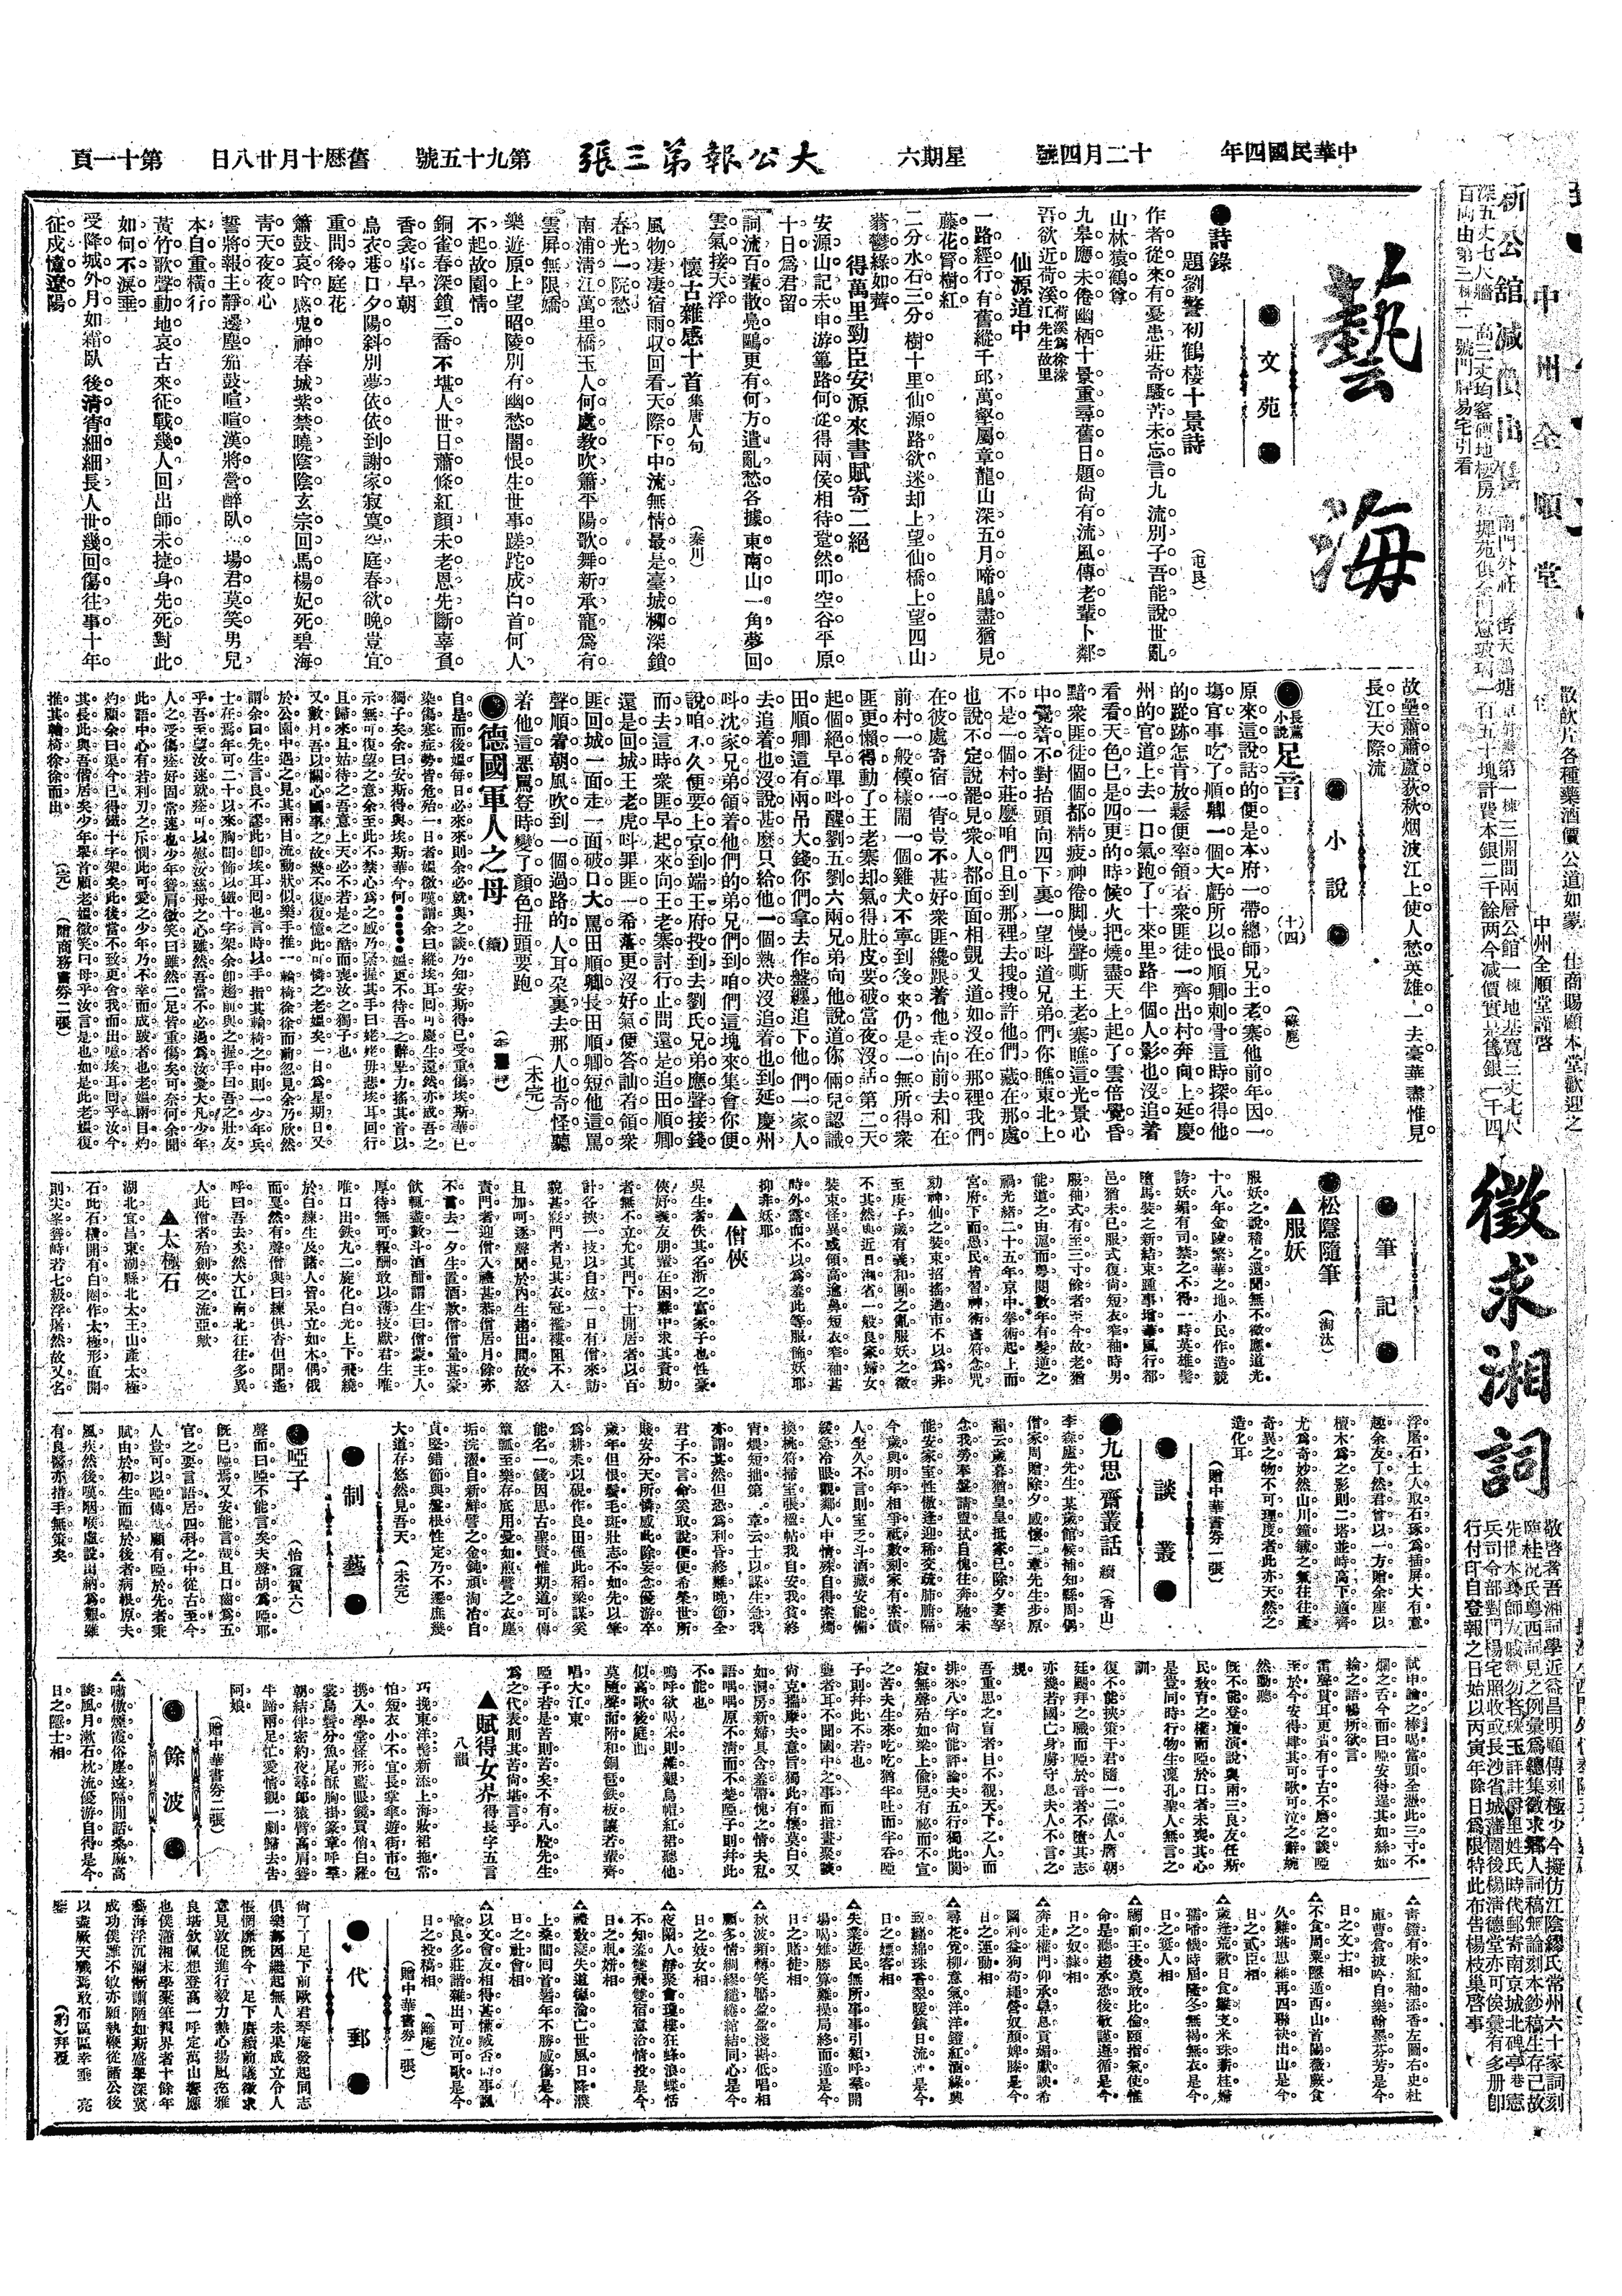 中華民國四年
十二月四號
星期六
大公報第三張
第九十五號
舊曆十月廿八日
第十一頁
藝海
文苑
●詩錄
題劉警初鶴棲十景詩
作者從來有憂患莊奇騷苦未忘言九流別子吾能說世亂
山林猿鶴尊
九皋應未倦幽栖十景重尋舊日題尙有流風傳老輩卜鄰
吾欲近荷溪
仙源道中
一路經行有舊縱千邱萬壑屬章龍山深五月啼鵑盡猶見
藤花罥樹紅
二分水石三分樹十里仙源路欲迷却上望仙橋上望四山
蓊鬱綠如薺
得萬里勁臣安源來書賦寄二絕
安源山記未申游篳路何從得兩侯相待跫然叩空谷平原
十日爲君留
詞流百輩散鳧鷗更有何方遣亂愁各據東南山一角夢回
雲氣接天浮
懷古雜感十首集唐人句
(秦川)
風物凄凄宿雨収回看天際下中流無情最是臺城柳深鎖
春光一院愁
南浦淸江萬里橋玉人何處教吹簫平陽歌舞新承寵爲有
雲屏無限嬌
樂遊原上望昭陵別有幽愁闇恨生世事蹉跎成白首何人
不起故園情
銅雀春深鎖二喬不堪人世日蕭條紅顏未老恩先斷辜負
香衾事早朝
烏衣巷口夕陽斜別夢依依到謝家寂寞空庭春欲晚豈宜
重問後庭花
簫鼓哀吟感鬼神春城紫禁曉陰陰玄宗回馬楊妃死碧海
靑天夜夜心
誓將報主靜邊塵笳鼓喧喧漢將營醉臥場君莫笑男兒
本自重橫行
黃竹歌聲動地哀古來征戰幾人回出師未捷身先死對此
如何不淚垂
受降城外月如霜臥後淸宵細細長人世幾回傷往事十年
征戍憶遼陽
故壘蕭蕭蘆荻秋烟波江上使人愁英雄一去豪華盡惟見
長江天際流
小說
●長篇小說 足音
(十四)
原來這說話的便是本府一帶總師兄王老寨他前年因一
塲官事吃了順卿一個大虧所以恨順卿刺骨這時探得他
的蹤跡怎肯放鬆便率領着衆匪徒一齊出村奔向上延慶
州的官道上去一口氣跑了十來里路半個人影也沒追着
看看天色已是四更的時候火把燒盡天上起了雲倍覺昏
黯衆匪徒個個都精疲神倦脚慢聲嘶王老寨瞧這光景心
中覺着不對抬頭向四下裏一望呌道兄弟們你瞧東北上
不是一個村莊麼咱們且到那裡去搜搜許他們藏在那處
也說不定說罷見衆人都面面相覷又道如沒在那裡我們
在彼處寄宿一宵豈不甚好衆匪纔跟着他走向前去和在
前村一般模樣鬧一個雞犬不寧到後來仍是一無所得衆
匪更懶得動了王老寨却氣得肚皮要破當夜沒話第二天
起個絕早單呌醒劉五劉六兩兄弟向他說道你倆兒認識
田順卿這有兩吊大錢你們拿去作盤纏追下他們一家人
去追着也沒說甚麼只給他一個熱決沒追着也到延慶州
呌沈家兄弟領着他們的弟兄們到咱們這塊來集會你便
說咱不久便要上京到端王府投到去劉氏兄弟應聲接錢
而去這時衆匪早起來向王老寨討行止問還是追田順卿
還是回城王老虎呌罪匪一希落更沒好氣便答訕着領衆
匪回城一面走一面破口大罵田順卿長田順卿短他這罵
聲順着朝風吹到一個過路的人耳朵裏去那人也奇怪聽
着他這惡罵登時變了顏色扭頭要跑
(未完)
●德國軍人之母
(續)
自是而後媼每日必來來則余必就與之談乃知安斯得已受重傷埃斯華已
染傷寒症勢皆危殆一日者媼微嘆謂余曰縱埃耳囘可慶生還然亦或吾之
獨子矣余曰安斯得與埃斯華今何●●●●●媼更不待吾之辭畢力搖其首以
示無可復望之意余至此不禁心爲之慼乃緊握其手曰姥姥毋悲埃耳囘行
且歸來且始待之吾意上天必不若是之酷而喪汝之獨子也
又數月吾以關心國事之故幾不復復憶此可憐之老媼矣一日爲星期日又
於公園中遇之見其兩目流動狀似樂手推一輪椅徐徐而前忽見余乃欣然
謂余曰先生言良不謬此卽埃耳囘也言時以手指其輪椅之中則一少年兵
士在焉年可二十以來胸間飾以鐵十字架余卽趨前與之握手曰吾之壯友
乎吾至望汝速就痊可以慰汝慈母之心雖然吾當不必過爲汝憂大凡少年
人之受傷痊好固常速也少年聳肩微笑曰雖然二足皆重傷矣可奈何余聞
此語中心有若利刃之斥憫此可愛之少年乃不幸而成跛者也老媼兩目灼
灼顧余曰渠今已得鐵十字架矣此後當不致更舍我而出噫埃耳囘乎汝今
其長此與吾偕居矣少年舉首顧老媼微笑曰母乎汝言是也如是此老媼復
推其輪椅徐徐而出
(完)
(贈商務書劵二張)
筆記
●松隱隨筆
(淘汰)
▲服妖
服妖之說稽之還聞無不徵應道光
十八年金陵繁華之地小民作造競
誇妖媚有司禁之不得一時英雄髻
墮馬裝之新結束踵事增華風行都
邑猶未已服式復尙短衣窄袖時男
服袖式有至三寸餘者至今故老猶
能道之由滬而粵閱數年有髮逆之
禍光緒二十五年京中拳術起上而
宮府下而愚民皆習神術書符念咒
効神仙之裝束招搖過市不以爲非
至庚子歲有義和團之亂服妖之徵
不其然與近日湘省一般良家婦女
裝束怪異或領高過鼻短衣窄袖甚
時外露而不以爲羞此等服飾妖耶
抑非妖耶
▲僧俠
吳生者佚其名浙之富家子也性豪
俠好義友朋輩在困難中求其資助
者無不立允其門下士閒居者以百
計各挾一技以自炫一日有僧來訪
貌甚寢門者見其衣冠襤褸阻不入
且加呵逐聲聞於內生趨出問故怒
責門者迎僧入禮甚恭僧居月餘亦
不嘗去一夕生置酒款僧僧量甚豪
飲輒盡數斗酒酣謂生曰僧蒙主人
厚待無可報酬敢以薄技獻君生唯
唯口出鉄丸二旋化白光上下飛繞
於白練生及諸人皆呆立如木偶俄
而戛然有聲僧與曰練俱杳但聞遙
呼曰吾去矣然大江南北往往多異
人此僧者殆劍俠之流亞歟
▲太極石
湖北宜昌東湖縣北太王山產太極
石此石橫開有白圈作太極形直開
則尖峯聳峙若七級浮屠然故又名
浮屠石土人取石琢爲插屏大有意
趣余友丁然君曾以一方贈余座以
檀木爲之影則二塔並峙高下適齊
尤爲奇妙然山川鐘毓之氣往往產
奇異之物不可理度者此亦天然之
造化耳
(贈中華書劵一張)
談叢
●九思齋叢話
續
(香山)
李森廬先生某歲館候補知縣周偶
僧家周贈除夕感懷二章先生步原
韻云歲暮猶皇皇抵家已除夕妻孥
念我勞奉盤請盥拭自愧往奔馳未
能安家室性傲逢迎稀交疏肺腑隔
今歲與明年相爭祗數刻家有索債
人坐久不言則室乏斗酒藏安能備
綏急冷眼觀鄰人中情殊自得索燭
換桃符掃室張楹帖我自安我貧終
宵煨短拙第二章云士以謀生急我
亦謂其然但恐爲利昏終難晚節全
君子不言命奚取說便便希榮世所
賤安分天所憐感此除妄念優游卒
歲年但恨鬢毛斑壯志不如先以筆
爲耕耒以硯作良田僅此稻粱謀奚
能名一錢因思古聖賢惟期道可傳
簞瓢至樂存底用憂如煎譬之衣塵
垢浣濯自新鮮譬之金鈍頑淘冶自
貞堅錯節與盤根性定乃不遷庶幾
大道存悠然見吾天
(未完)
制藝
●啞子
聲而曰啞不能言矣夫聲胡爲啞耶
旣已啞焉又安能言哉且口齒爲五
官之要言語居四科之中從古至今
人豈可以啞傳哉顧有啞於先者乘
賦由於初生而啞於後者病根原夫
風疾然後嘆咽喉處設出納爲艱雖
有良醫亦措手無策矣
試申論之棒喝當頭全憑此三寸不
爛之舌今而曰啞安得逞其如絲如
綸之語暢所欲言
雷聲貫耳更貴有千古不磨之談啞
至於今安得肆其可歌可泣之辭婉
然動聽
旣不能登壇演說與兩三良友任斯
民教育之權而啞於口者未喪其心
是豈同時行物生凜孔聖人無言之
訓
復不能挾策于君隨一二偉人膺朝
廷颺拜之職而啞於音者不墮其志
亦幾若國亡身虜守息夫人不言之
規
吾重思之盲者目不覩天下之人而
排來八字尙能評論夫五行獨此閔
寂無聲殆如梁上偸兒有祕而不宣
之苦夫生來吃吃猶半吐而半吞啞
子則幷此不若也
聾者耳不聞國中之事而指畫聚談
尙克揣摩夫意旨獨此有懷莫白又
如洞房新婦具含羞帶愧之情夫私
語喁喁原不淸而不楚啞子則幷此
不能也
嗚呼欲喝采則難觀烏帽紅裙聽他
似高歌後庭曲
莫隨聲而附和銅琶鉄板讓若輩齊
唱大江東
啞子若是苦則苦矣不有八股先生
爲之代表則其苦尙堪言乎
▲賦得女界
得長字五言
八韻
巧挽東洋髻新添上海妝裙拖常
怕短衣小不宜長掌傘遊街市包
携入學堂怪形藍眼鏡買俏白羅
裳鳥鬢分魚尾酥胸掛篆章呼羣
朝結伴密約夜尋郎猿臂高肩聳
牛蹄兩足忙愛情觀一劇歸去告
阿娘
(贈中華書劵二張)
餘波
△嘯傲煙霞俗塵遠隔開話桑麻高
談風月漱石枕流優游自得是今
日之隱士相
△靑鐙有味紅袖添香左圖右史杜
庫曹倉披吟自樂翰墨芬芳是今
日之文士相
△不食周粟隱遁西山首陽薇蕨食
久難堪思維再四聯袂出山是今
日之貳臣相
△歲逢荒歉日食難支米珠薪桂婦
孺啼饑時屆隆冬無褐無衣是今
日之窶人相
△禰前王後莫敢比倫頤指氣使惟
命是聽趨承恐後敬謹遵循是今
日之奴隸相
△奔走權門仰承鼻息貢媚獻諛希
圖利益狗苟蠅營奴顏婢膝是今
日之運動相
△尋花覓柳意氣洋洋鐙紅酒綠興
致纏綿珠香翠暖鎮日流連是今
日之嫖客相
△失業遊民無所事事引類呼羣開
場喝雉勝算難操局終而逭是今
日之賭徒相
△秋波頻轉笑靨盈盈淺斟低唱相
顧多情綢繆繾綣綰結同心是今
日之妓女相
△夜闌人靜聚會瓊樓狂蜂浪蝶恬
不知羞雙飛雙宿意洽情投是今
日之軋姘相
△禮敎凌夷失道德淪亡世風日降濮
上桑間回首當年不勝感傷是今
日之社會相
△以文會友相得甚懽臧否時事諷
喩良多莊諧雜出可泣可歌是今
日之投稿相
(贈中華書劵一張)
代郵
尙了了足下前歐君琴庵發起同志
俱樂部因繼起無人未果成立令人
悵惘靡旣今足下賡續前議徵求
意見敦促進行毅力熱心揚風扢雅
良堪欽佩想登高一呼定萬山響應
也僕瀟湘末學槖筆報界者十餘年
藝海浮沉彌慚謭陋如斯盛舉深冀
成功僕雖不敏亦願執鞭從諸公後
以盡厥天職焉敢布區區幸垂亮
鑒
(豹)拜覆
徵求湘詞
敬啓者吾湘詞學近益昌明顧傳刻極少今擬仿江陰繆氏常州六十家詞刻
臨桂況氏粤西詞見之例彙爲總集徵求鄉人詞稿無論刻本鈔稿生存已故
先世本爲師友戚鄰勿吝珠玉詳註爵里姓氏時代郵寄南京城北碑亭巷憲
兵司令部對門楊宅照收或長沙省城藩圍後楊淸德堂亦可俟彙有多册卽
行付印自登報之日始以丙寅年除日爲限特此布告楊枝巢啓事
中州全順堂
散飮片各種藥酒價公道如蒙仕商賜顧本堂歡迎之
中州全順堂謹啓
新公館減價出售